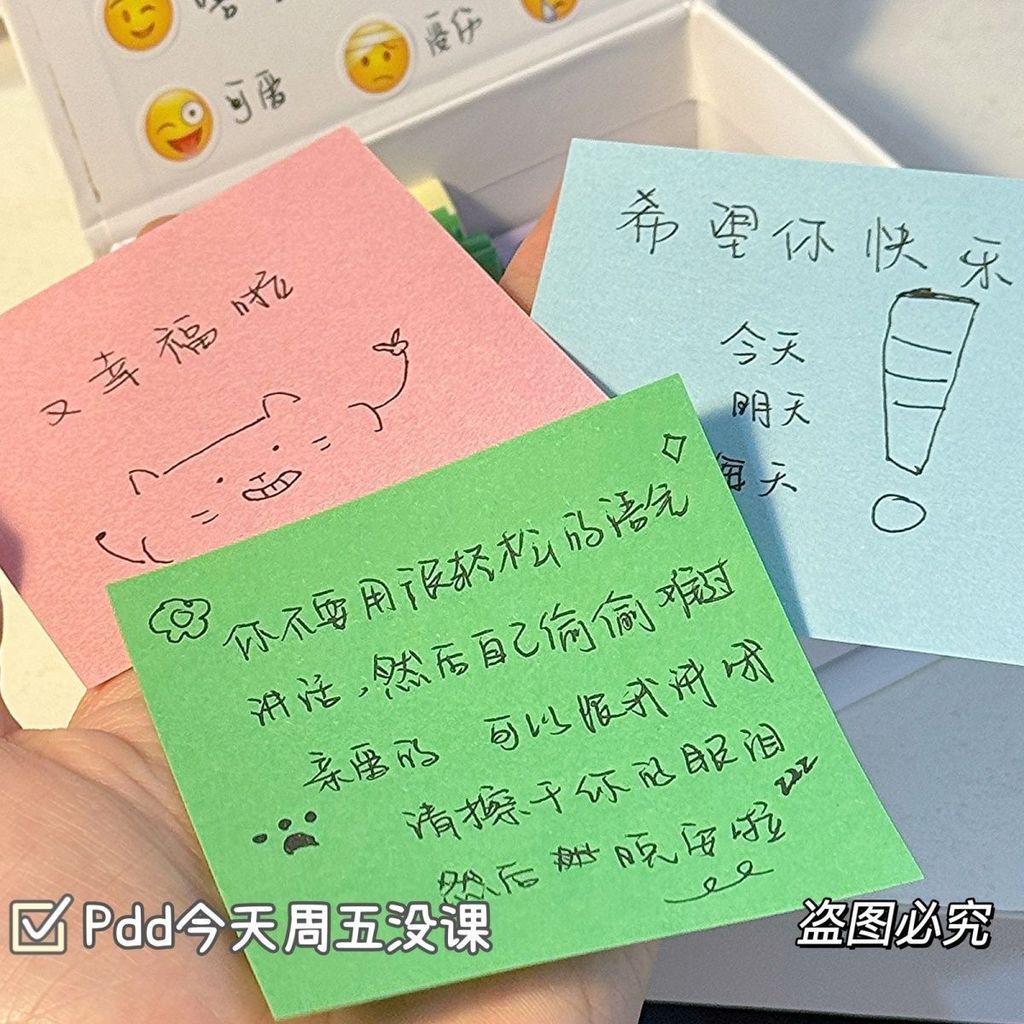 可爱
又幸福啦
希望你快乐
今天
明天
每天
你不要用很轻松的语气
讲话，然后自己偷偷难过
亲爱的 可以跟我讲哦
请擦干你的眼泪
zzz
然后 晚安啦
Pdd今天周五没课
盗图必究